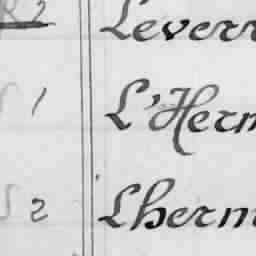 82 Leverr
S 1 L'Herm
S 2 Lherm